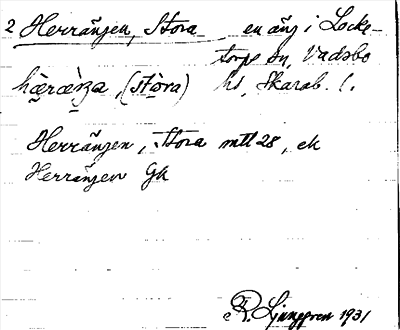 2 Herrängen, Stora en äng i Locke-
torps sn, Vadsbo
hæ̀ræ̀ṇa, (Stòra) hd, Skarab. l.
Herrängen, Stora mtl 28, ek
Herrängen Gk
R. Ljunggren 1931